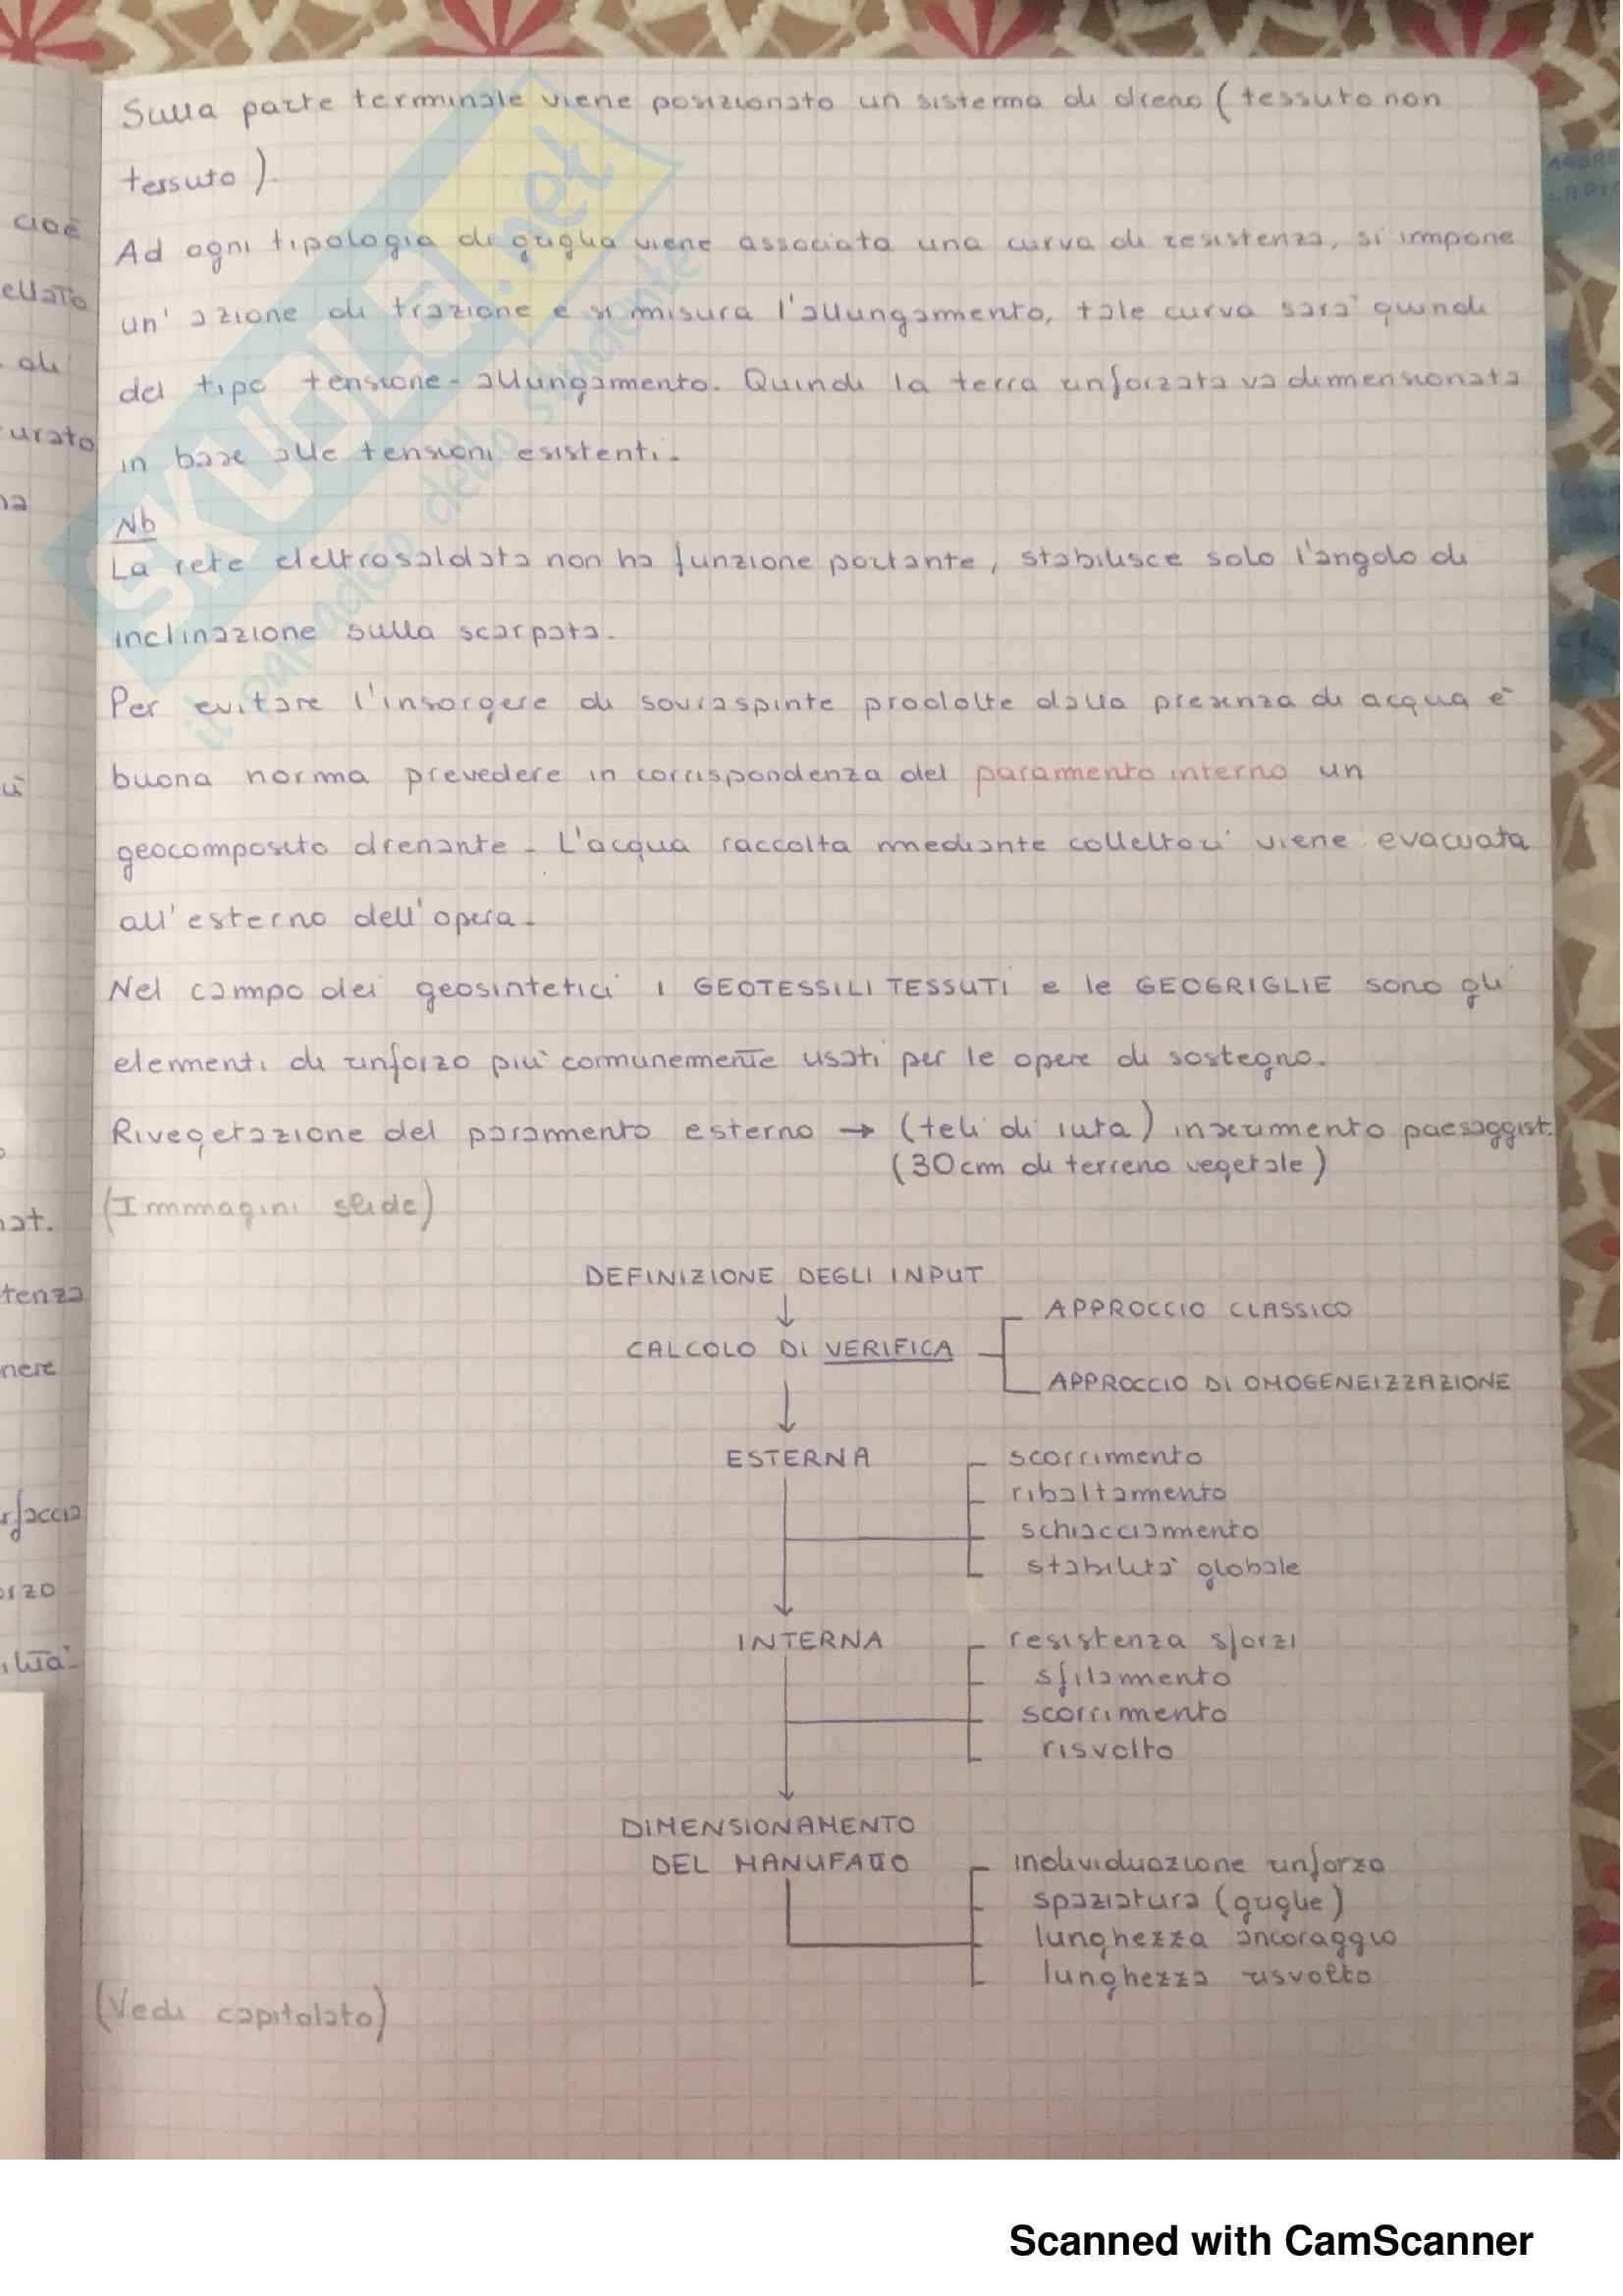 Sulla parte terminale viene posizionato un sistema di dreno (tessuto non
tessuto).
Ad ogni tipologia di griglia viene associata una curva di resistenza, si impone
un' azione di trazione e si misura l'allungamento, tale curva sara' quindi
del tipo tensione-allungamento. Quindi la terra rinforzata va dimensionata
in base alle tensioni esistenti.
Nb
La rete elettrosaldata non ha funzione portante, stabilisce solo l'angolo di
inclinazione sulla scarpata.
Per evitare l'insorgere di sovraspinte prodotte dalla presenza di acqua è
buona norma prevedere in corrispondenza del paramento interno un
geocomposito drenante. L'acqua raccolta mediante collettori viene evacuata
all'esterno dell'opera.
Nel campo dei geosintetici i GEOTESSILI TESSUTI e le GEOGRIGLIE sono gli
elementi di rinforzo piu' comunemente usati per le opere di sostegno.
Rivegetazione del paramento esterno → (teli di iuta) inserimento paesaggist.
(30cm di terreno vegetale)
(Immagini slide)
DEFINIZIONE DEGLI INPUT
APPROCCIO CLASSICO
CALCOLO DI VERIFICA
APPROCCIO DI OMOGENEIZZAZIONE
ESTERNA
scorrimento
ribaltamento
schiacciamento
stabilita' globale
INTERNA
resistenza sforzi
sfilamento
scorrimento
risvolto
DIMENSIONAMENTO
DEL MANUFATTO
individuazione rinforzo
spaziatura (griglie)
lunghezza ancoraggio
lunghezza risvolto
(Vedi capitolato)
cioè
ellato
di
urato
na
tenza
nere
rfaccia
orzo
ilità
SKUOLA.net
il paradiso dello studente
Scanned with CamScanner